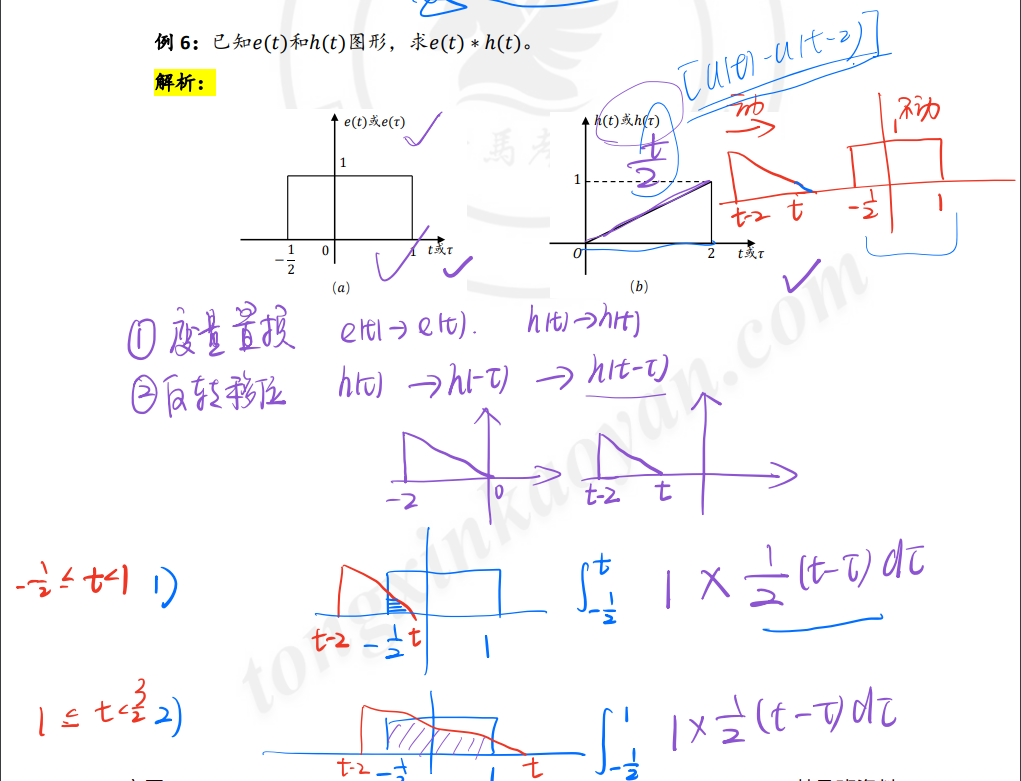 例 6：已知e(t)和h(t)图形，求e(t) ∗ h(t)。
[u(t)-u(t-2)]
解析：
e(t)或e(τ)
1
-1/2
0
1
t或τ
(a)
h(t)或h(τ)
t/2
1
O
2
t或τ
(b)
动
t-2
t
不动
1
-1/2
1
① 变量置换 e(t)→e(τ). h(t)→h(τ)
② 反转移位 h(τ) → h(-τ) → h(t-τ)
-2
0
t-2
t
-1/2 ≤ t<1 1)
t-2
-1/2
t
1
∫_{-1/2}^{t} 1 × 1/2 (t-τ) dτ
1 ≤ t<3/2 2)
t-2
-1/2
1
t
∫_{-1/2}^{1} 1 × 1/2 (t-τ) dτ
tongxinkaoyan.com